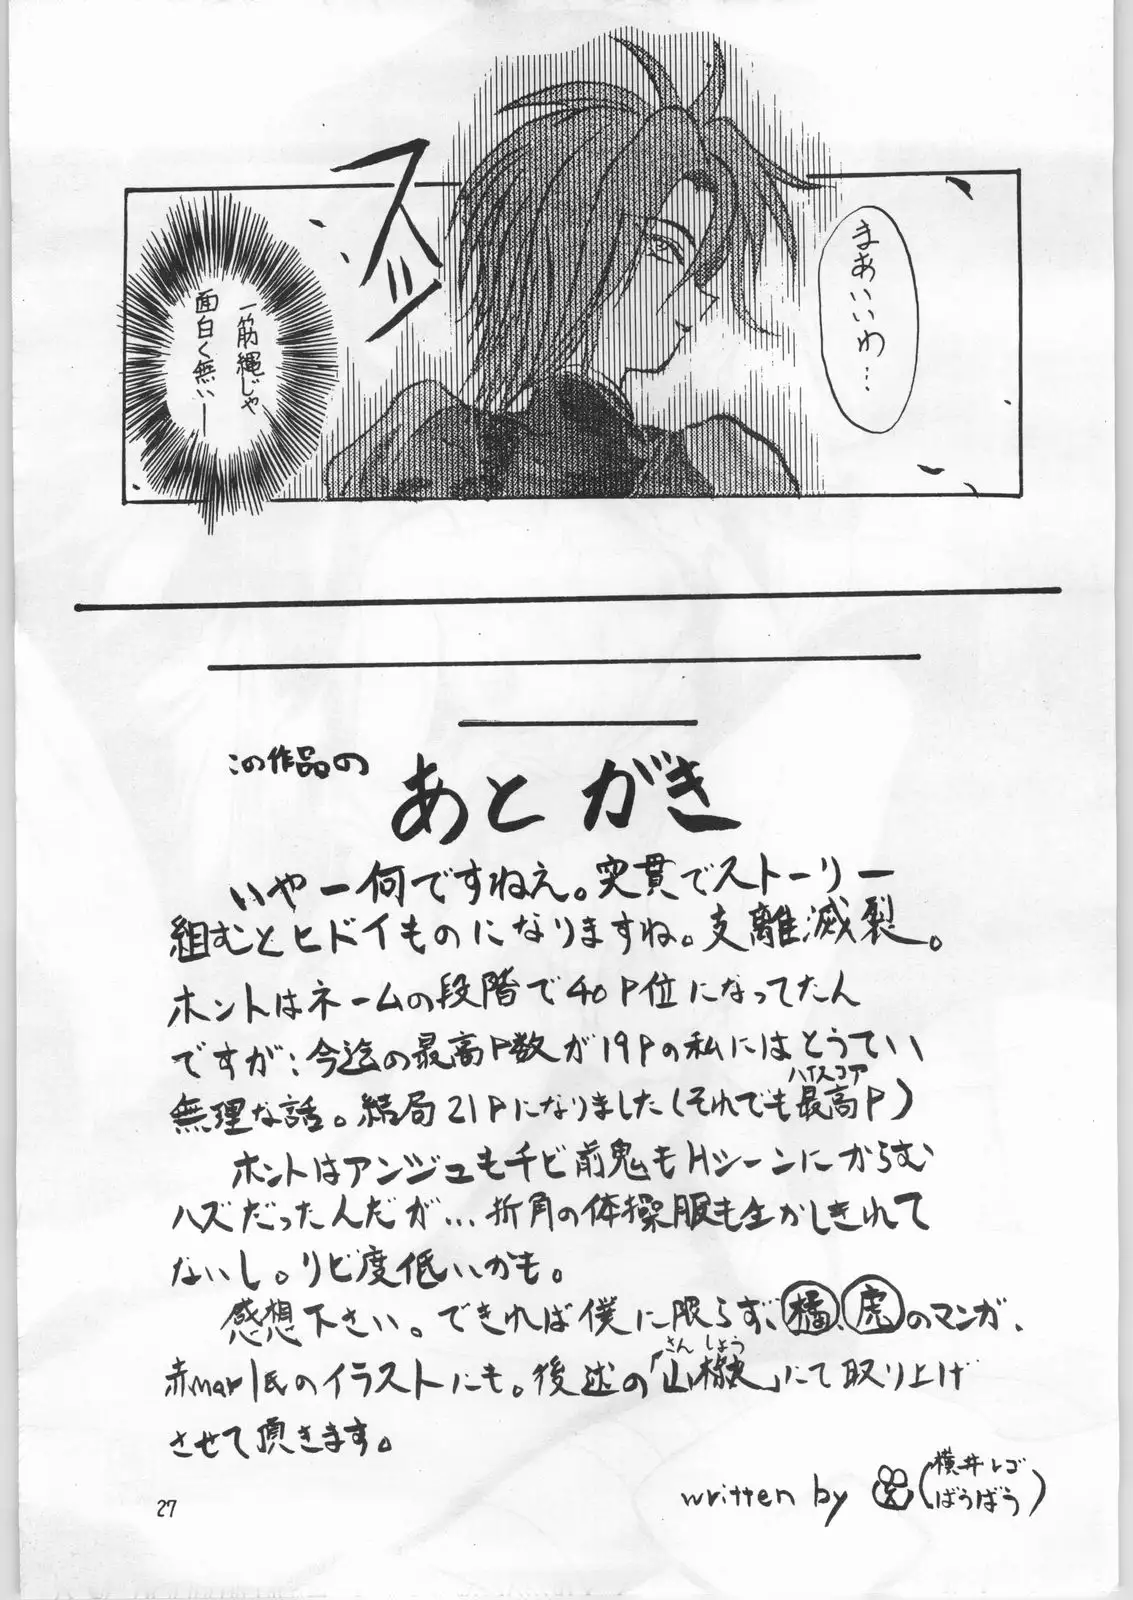 まあいいわ…
スッ
一筋縄じゃ
面白く無いー
この作品の
あとがき
いやー何ですねえ。突貫でストーリー
組むとヒドイものになりますね。支離滅裂。
ホントはネームの段階で40P位になってたん
ですが…今迄の最高P数が19Pの私にはとうてい
ハイスコア
無理な話。結局21Pになりました(それでも最高P)
ホントはアンジュも千ビ前鬼もHシーンにからむ
ハズだったんだが…折角の体操服も生かしきれて
ないし。リビ度低いかも。
感想下さい。できれば僕に限らず、橘、虎のマンガ、
さんしょう
赤mar氏のイラストにも。後述の「山椒」にて取り上げ
させて頂きます。
written by
(横井レゴ
ばうばう)
27